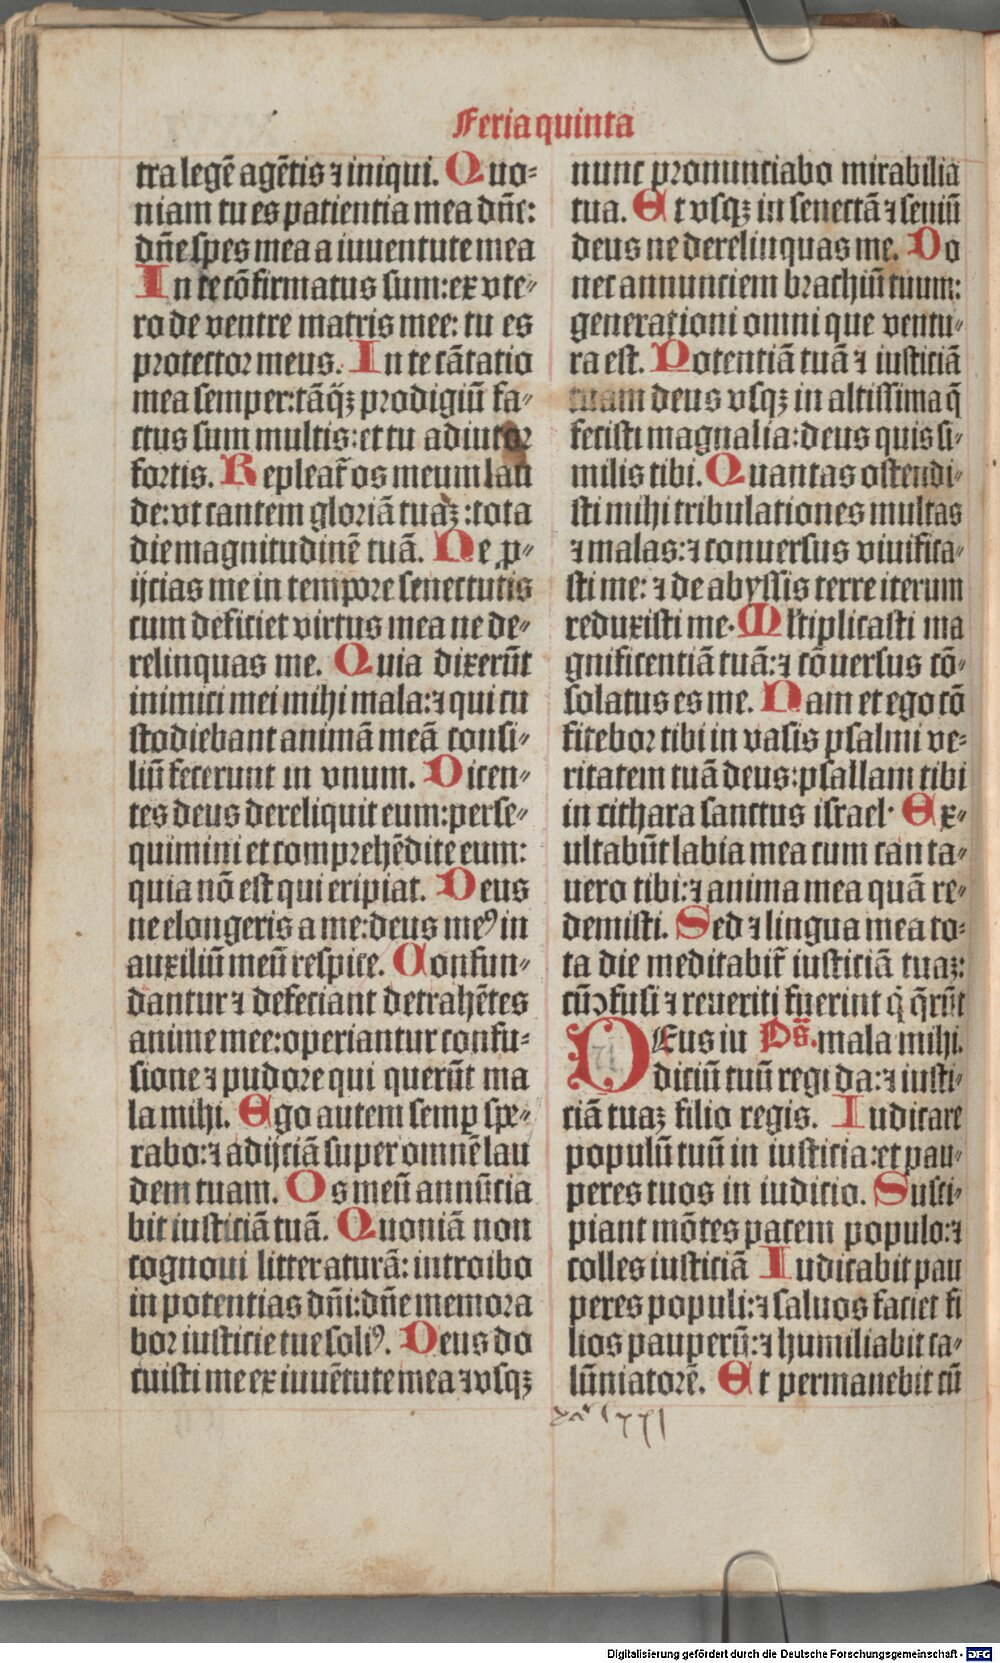 Feria quinta
tra legē agētis ⁊ iniqui. Quo-
niam tu es patientia mea dñe:
dñe spes mea a iuuentute mea
In te cōfirmatus sum: ex vte-
ro de ventre matris mee: tu es
protector meus. In te cātatio
mea semper: tāꝗ̃ꝫ prodigiū fa-
ctus sum multis: et tu adiutor
fortis. Repleat̃ os meum lau
de: vt cantem gloriā tuaꝫ: tota
die magnitudinē tuā. Ne ꝓ-
ijcias me in tempore senectutis
cum deficiet virtus mea ne de-
relinquas me. Quia dixerūt
inimici mei mihi mala: ⁊ qui cu
stodiebant animā meā consi-
liū fecerunt in vnum. Dicen-
tes deus dereliquit eum: perse-
quimini et comprehēdite eum:
quia nō est qui eripiat. Deus
ne elongeris a me: deus meꝰ in
auxiliū meū respice. Confun-
dantur ⁊ defeciant detrahētes
anime mee: operiantur confu-
sione ⁊ pudore qui querūt ma
la mihi. Ego autem semꝑ spe-
rabo: ⁊ adijciā super omnē lau
dem tuam. Os meū annūcia
bit iusticiā tuā. Quoniā non
cognoui litteraturā: introibo
in potentias dñi: dñe memora
bor iusticie tue soliꝰ. Deus do
cuisti me ex iuuētute mea ⁊ vsqꝫ
nunc pronunciabo mirabilia
tua. Et vsqꝫ in senectā ⁊ seniū
deus ne derelinquas me. Do
nec annunciem brachiū tuum:
generationi omni que ventu-
ra est. Potentiā tuā ⁊ iusticiā
tuam deus vsqꝫ in altissima q̄
fecisti magnalia: deus quis si-
milis tibi. Quantas ostendi-
sti mihi tribulationes multas
⁊ malas: ⁊ conuersus viuifica-
sti me: ⁊ de abyssis terre iterum
reduxisti me. Ml̃tiplicasti ma
gnificentiā tuā: ⁊ cōuersus cō-
solatus es me. Nam et ego cō
fitebor tibi in vasis psalmi ve-
ritatem tuā deus: psallam tibi
in cithara sanctus israel. Ex-
ultabūt labia mea cum canta-
uero tibi: ⁊ anima mea quā re-
demisti. Sed ⁊ lingua mea to-
ta die meditabit̃ iusticiā tuaꝫ:
cū ↄfusi ⁊ reueriti fuerint q̇ q̄rūt
DEus iu Ps̃. mala mihi.
diciū tuū regi da: ⁊ iusti-
ciā tuaꝫ filio regis. Iudicare
populū tuū in iusticia: et pau-
peres tuos in iudicio. Susci-
piant mōtes pacem populo: ⁊
colles iusticiā Iudicabit pau
peres populi: ⁊ saluos faciet fi
lios pauperū: ⁊ humiliabit ca-
lūniatorē. Et permanebit cū
Digitalisierung gefördert durch die Deutsche Forschungsgemeinschaft - DFG